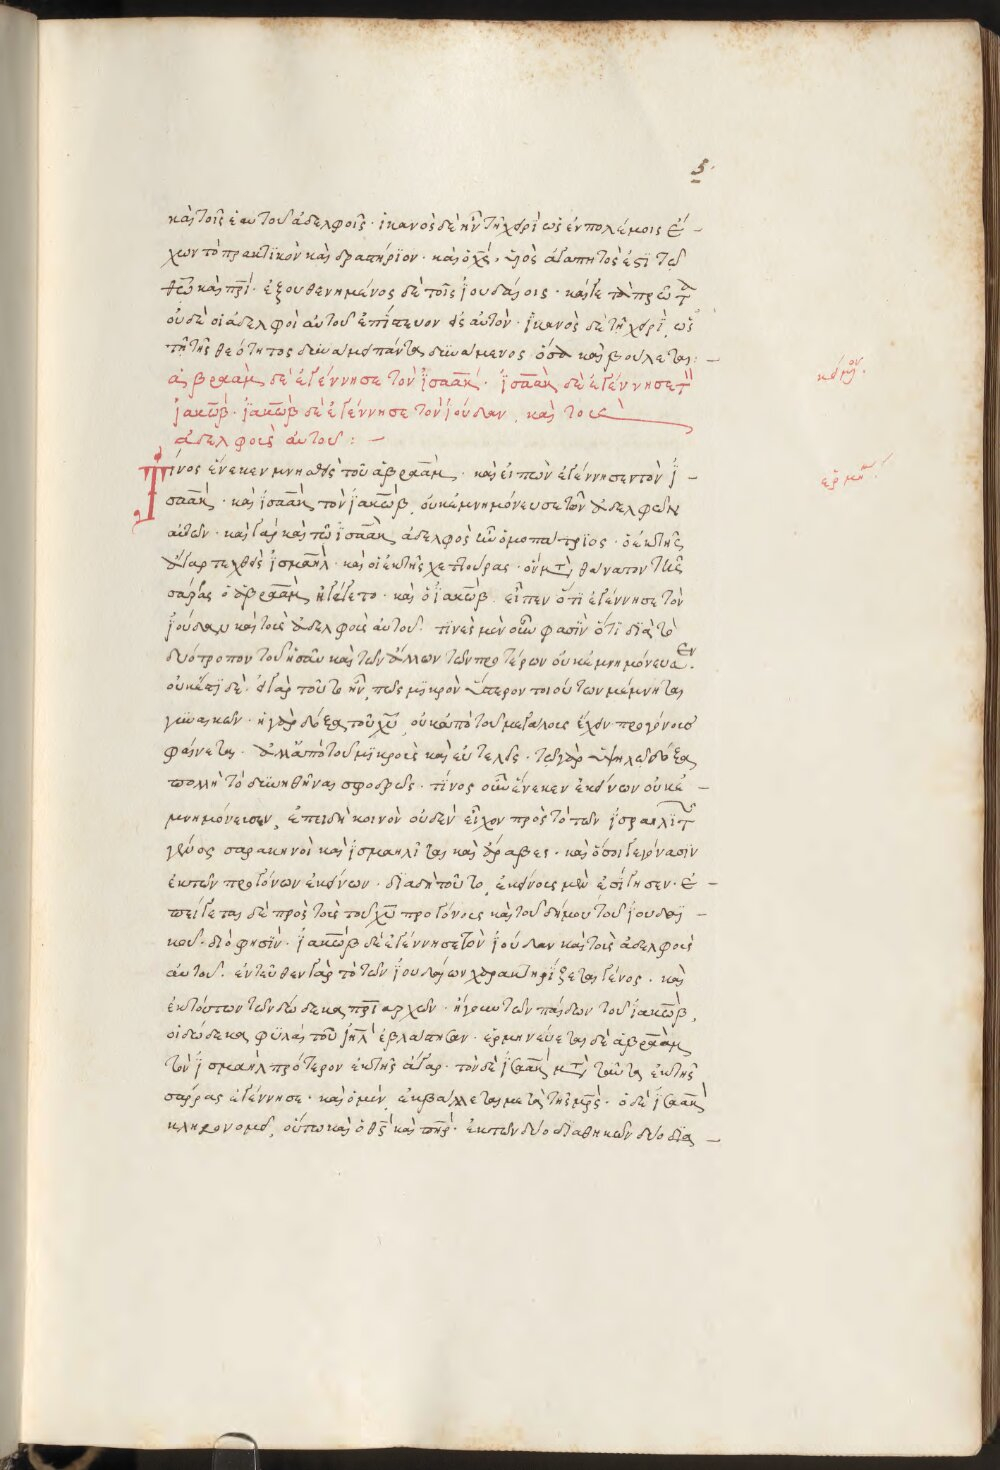 5
καὶ τοῖς ἑαυτοῦ ἀδελφοῖς · ἱκανὸς δὲ ἦν τῇ χειρὶ ὡς ἐν πολέμοις ἔ –
χων τὸ πρακτϊκὸν καὶ δραστήριον · καὶ ὁ χς, υἱὸς ἀγαπητὸς ἐστϊ τῶ
θῶ καὶ πρι · ἐξουθενημένος δὲ τοῖς ϊουδαίοις · καίγε
οὐδὲ οἱ ἀδελφοὶ αὐτοῦ ἐπίστευον εἰς αὐτὸν · ϊκανὸς δὲ τῇ χειρὶ, ὡς
τῇ τῆς θεότητος δυνάμει πάντα δυνάμενος ὅσα καὶ βούλεται: –
ἀβραὰμ δὲ ἐγέννησε τὸν ϊσαὰκ · ϊσαὰκ δὲ ἐγέννησε τ
ϊακὼβ · ϊακὼβ δὲ ἐγέννησε τὸν ϊούδαν, καὶ τοὺς
ἀδελφοὺς αὐτοῦ : –
Τίνος ἕνεκεν μνησθεὶς τοῦ ἀβραὰμ · καὶ εἰπὼν ἐγέννησεν τὸν ϊ –
σαὰκ · καὶ ϊσαὰκ τὸν ϊακὼβ, οὐκ ἐμνημόνευσε τῶν ἀδελφῶν
αὐτῶν · καὶ γὰρ καὶ τῶ ϊσαὰκ ἀδελφὸς ὢν ὁμοπάτρϊος · ὁ ἐκ τῆς
ἄγαρ τεχθεὶς ϊσμαὴλ · καὶ οἱ ἐκ τῆς χεττούρας · θάνατον τῆς
σάρρας ὁ ἀβραὰμ ἠγάγετο · καὶ ὁ ϊακὼβ εἶπεν ὅτϊ ἐγέννησε τὸν
ϊούδαν καὶ τοὺς ἀδελφοὺς αὐτοῦ · τϊνὲς μὲν οὖν φασὶν ὅτϊ δϊὰ τὸ
δύστροπον τοῦ ἠσαῦ καὶ τῶν ἄλλων τῶν προτέρων οὐκ ἐμνημόνευσεν ·
οὐκ ἔστϊ δέ · εἰ γὰρ τοῦτο ἦν, πῶς μϊκρὸν ὕστερον τοιούτων μέμνηται
γυναικῶν · ἡ γὰρ δόξα τοῦ χυ, οὐκ ἀπὸ τοῦ μεγάλους ἔχειν προγόνους
φαίνεται · ἀλλ' ἀπὸ τοῦ μϊκροὺς καὶ εὐτελεῖς · τῶ γὰρ ὑψηλῶ δόξα
πολλὴ τὸ δυνηθῆναι σφοδρῶς · τίνος οὖν ἕνεκεν ἐκείνων οὐκ ἐ –
μνημόνευσεν, ἐπειδὴ κοινὸν οὐδὲν εἶχον πρὸς τὸ τῶν ϊσραηλϊτ
γένος σαρακηνοὶ καὶ ϊσμαηλῖται καὶ ἄραβες · καὶ ὅσοι γεγόνασϊν
ἐκ τῶν προγόνων ἐκείνων · δϊὰ δὴ τοῦτο, ἐκείνους μὲν ἐσίγησεν · ἐ –
πείγεται δὲ πρὸς τοὺς τοῦ χυ προγόνους καὶ τοῦ δήμου τοῦ ϊουδαϊ –
κοῦ · διό φησϊν · ϊακὼβ δὲ ἐγέννησε τὸν ϊούδαν καὶ τοὺς ἀδελφοὺς
αὐτοῦ · ἐντεῦθεν γὰρ τὸ τῶν ϊουδαίων χαρακτηρίζεται γένος · καὶ
ἐκ τούτων τῶν δώδεκα πριαρχῶν · ἤγουν τῶν παίδων τοῦ ϊακὼβ,
οἱ δώδεκα φϋλαὶ τοῦ ϊηλ ἐβλάστησαν · ἑρμηνεύεται δὲ ἀβραὰμ
τὸν ϊσμαὴλ πρότερον ἐκ τῆς ἄγαρ · τὸν δὲ ϊσαὰκ μετὰ ταῦτα ἐκ τῆς
σάρρας ἐγέννησε · καὶ ὁ μὲν, ἐκβάλλεται μετὰ τῆς μρς · ὁ δὲ ϊσαὰκ
κληρονομεῖ, οὕτω καὶ ὁ θς καὶ πηρ · ἐκ τῶν δύο διαθηκῶν δύο δϊα –
κείμον.
ερμη